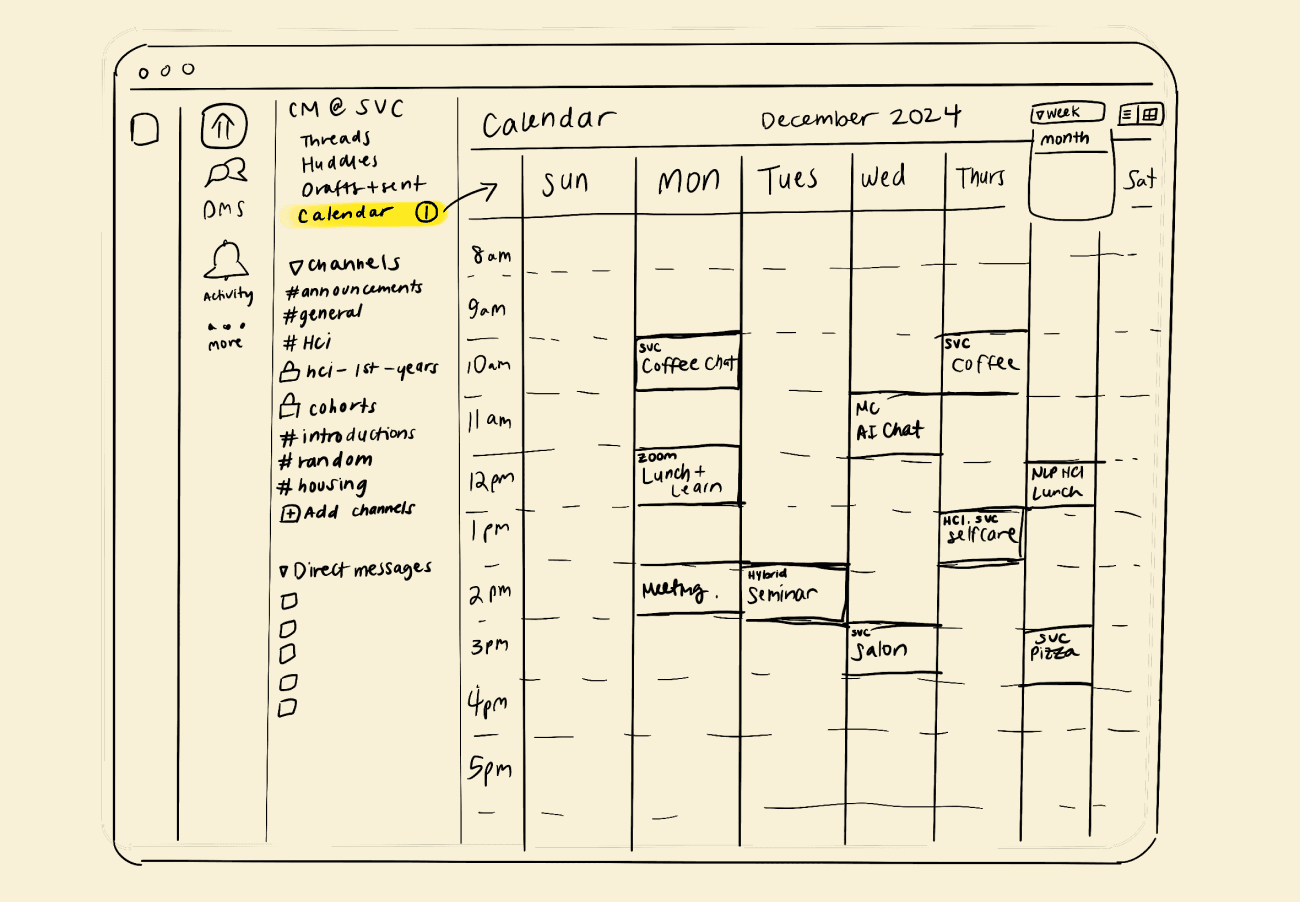 CM @ SVC
Threads
Huddles
Drafts + sent
Calendar 1
DMS
Activity
more
▽ channels
#announcements
#general
# Hci
hci-1st-years
cohorts
# introductions
# random
# housing
+ Add channels
▽ Direct messages
Calendar
December 2024
▽ week
month
Sun
Mon
Tues
Wed
Thurs
Sat
8am
9am
10am
11am
12pm
1pm
2pm
3pm
4pm
5pm
SVC
Coffee Chat
zoom
Lunch +
Learn
Meeting.
Hybrid
Seminar
MC
AI Chat
SVC
Salon
SVC
Coffee
HCI. SVC
selfcare
NLP HCI
Lunch
SVC
Pizza